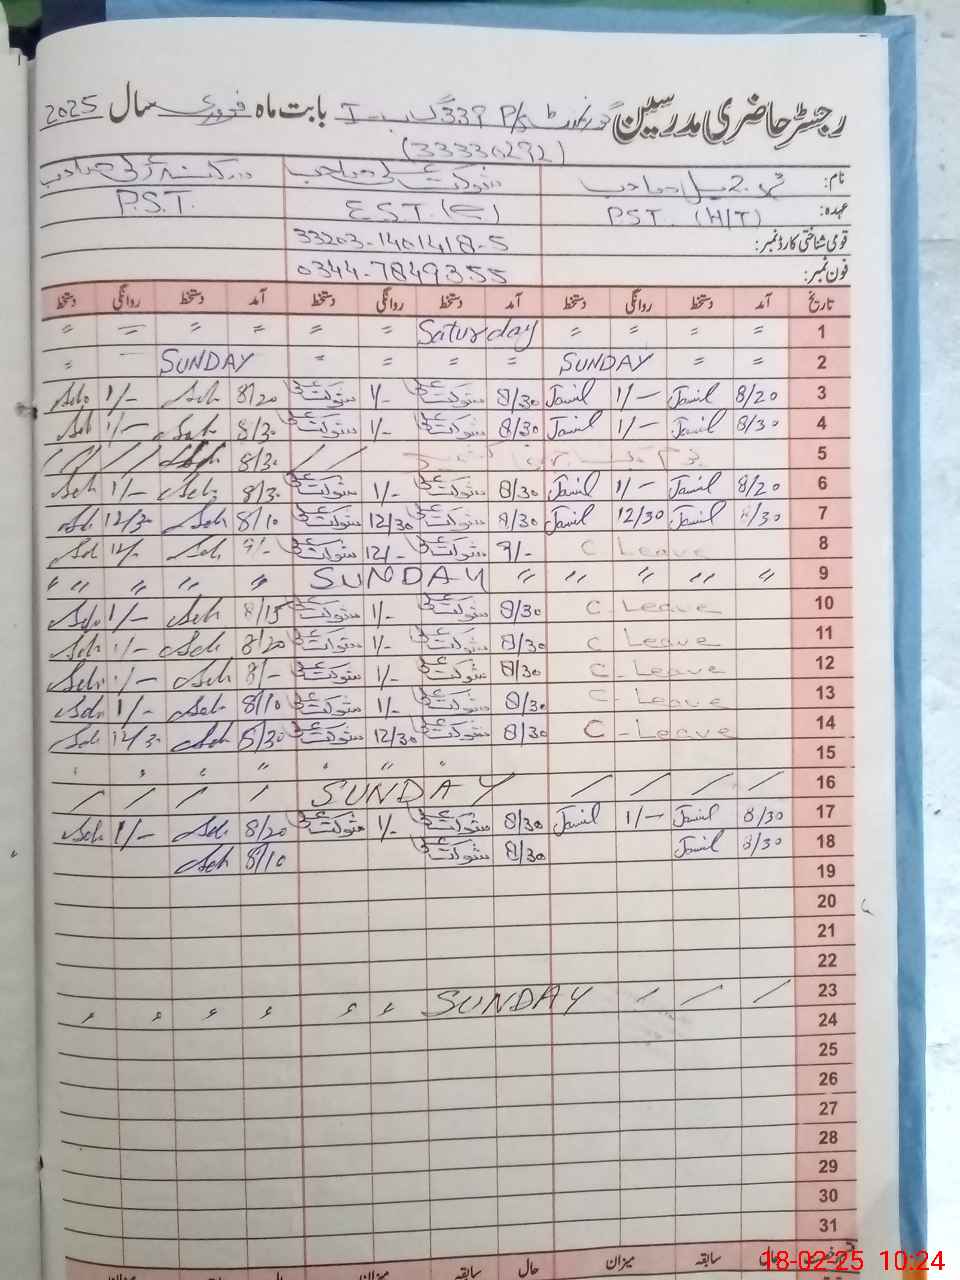 رجسٹر حاضری مدرسین گورنمنٹ P/S 339 گ ب I بابت ماہ فروری سال 2025
(33330292)
نام: صاحب شوکت علی صاحب صاحب
عہدہ: PST. (H/T) E.S.T. (E) P.S.T.
قومی شناختی کارڈ نمبر: 33203-1401418-5
فون نمبر: 0344-7849355
تاریخ آمد دستخط روانگی دستخط آمد دستخط روانگی دستخط آمد دستخط روانگی دستخط
1 〃 〃 〃 〃 Saturday 〃 〃 〃 〃 〃 〃
2 〃 〃 SUNDAY 〃 〃 〃 SUNDAY 〃
3 8/20 Jamil 1/- Jamil 8/30 شوکت علی 1/- شوکت علی 8/20 Seh 1/- Seh
4 8/30 Jamil 1/- Jamil 8/30 شوکت علی 1/- شوکت علی 8/30 Seh 1/- Seh
5 8/30 Seh
6 8/20 Jamil 1/- Jamil 8/30 شوکت علی 1/- شوکت علی 8/30 Seh 1/- Seh
7 8/30 Jamil 12/30 Jamil 8/30 شوکت علی 12/30 شوکت علی 8/10 Seh 12/30 Seh
8 C. Leave 9/- شوکت علی 12/- شوکت علی 9/- Seh 12/- Seh
9 〃 〃 〃 〃 〃 SUNDAY 〃 〃 〃 〃
10 C. Leave 8/30 شوکت علی 1/- شوکت علی 8/15 Seh 1/- Seh
11 C Leave 8/30 شوکت علی 1/- شوکت علی 8/20 Seh 1/- Seh
12 C. Leave 8/30 شوکت علی 1/- شوکت علی 8/- Seh 1/- Seh
13 C - Leave 8/30 شوکت علی 1/- شوکت علی 8/10 Seh 1/- Seh
14 C - Leave 8/30 شوکت علی 12/30 شوکت علی 8/30 Seh 12/30 Seh
15
16 / / / / SUNDAY / / / /
17 8/30 Jamil 1/- Jamil 8/30 شوکت علی 1/- شوکت علی 8/20 Seh 1/- Seh
18 8/30 Jamil 8/30 شوکت علی 8/10 Seh
19
20
21
22
23 SUNDAY
24
25
26
27
28
29
30
31
حال سابقہ میزان حال سابقہ میزان
18-02-25 10:24